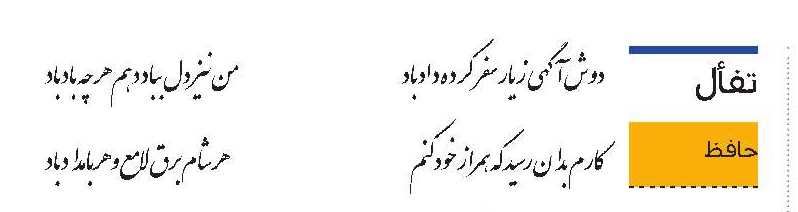 تفأل
حافظ
دوش آگهی ز یار سفر کرده داد باد
من نیز دل بباد دهم هر چه باد باد
کارم بدان رسید که همراز خود کنم
هر شام برق لامع و هر بامداد باد